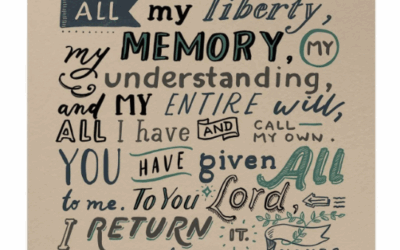 ALL my liberty,
my MEMORY, MY
understanding,
and MY ENTIRE will,
ALL I have AND CALL MY OWN.
YOU HAVE given All
to me. To You Lord,
I RETURN IT.